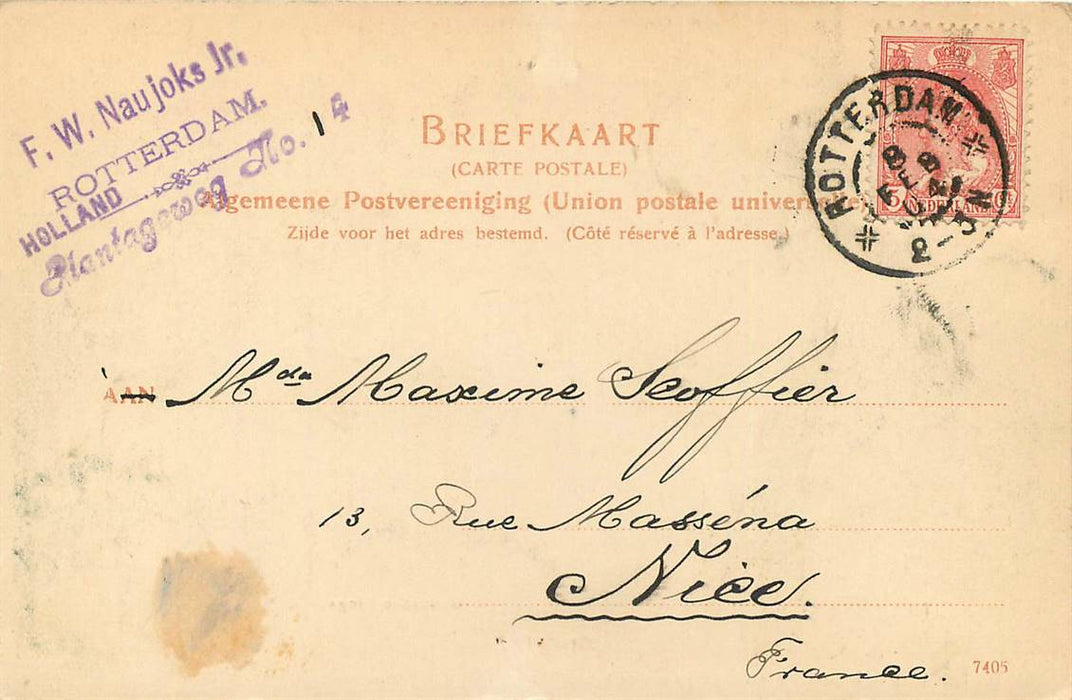 F. W. Naujoks Jr.
ROTTERDAM.
HOLLAND
Plantageweg No. 14
BRIEFKAART
(CARTE POSTALE)
Algemeene Postvereeniging (Union postale universelle)
Zijde voor het adres bestemd. (Côté réservé à l'adresse.)
NEDERLAND
ROTTERDAM
FEB
2-3N
À AAN Mda Maxime Scoffier
13, Rue Masséna
Nice.
France.
7405